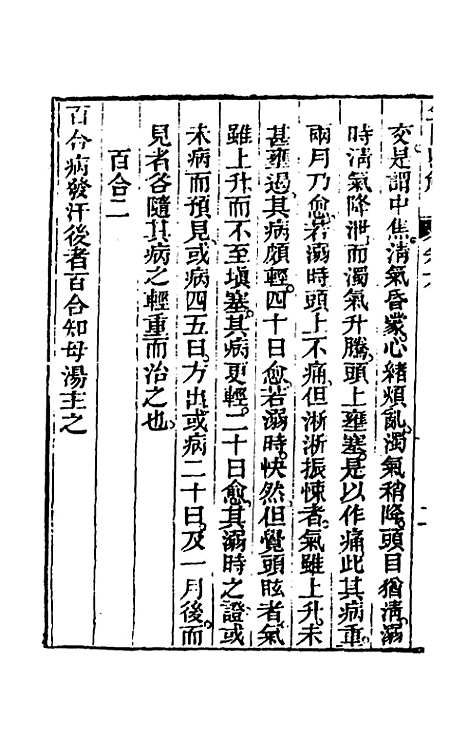 交是謂中焦清氣昏蒙心緒煩亂濁氣稍降頭目猶清溺
時清氣降泄而濁氣升騰頭上壅塞是以作痛此其病重
兩月乃愈若溺時頭上不痛但淅淅振悚者氣雖上升未
甚壅遏其病頗輕四十日愈若溺時快然但覺頭眩者氣
雖上升而不至塡塞其病更輕二十日愈其溺時之證或
未病而預見或病四五日方出或病二十日及一月後而
見者各隨其病之輕重而治之也
百合二
百合病發汗後者百合知母湯主之